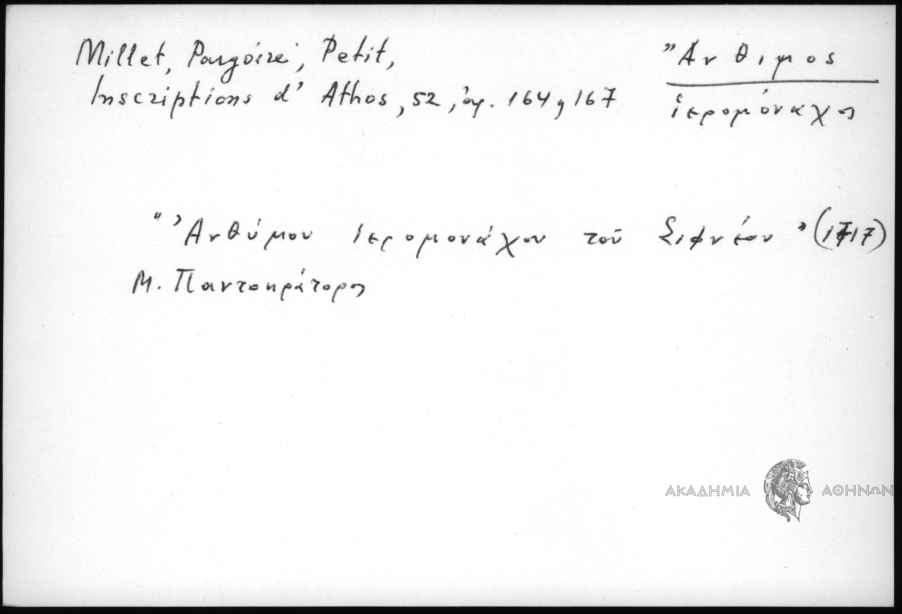 Millet, Pargoire, Petit,
Inscriptions d' Athos, 52, ἀρ. 164, 167
Ἄνθιμος
ἱερομόναχος
"Ἀνθύμου ἱερομονάχου τοῦ Σιφνέου" (1717)
Μ. Παντοκράτορος
ΑΚΑΔΗΜΙΑ ΑΘΗΝΩΝ